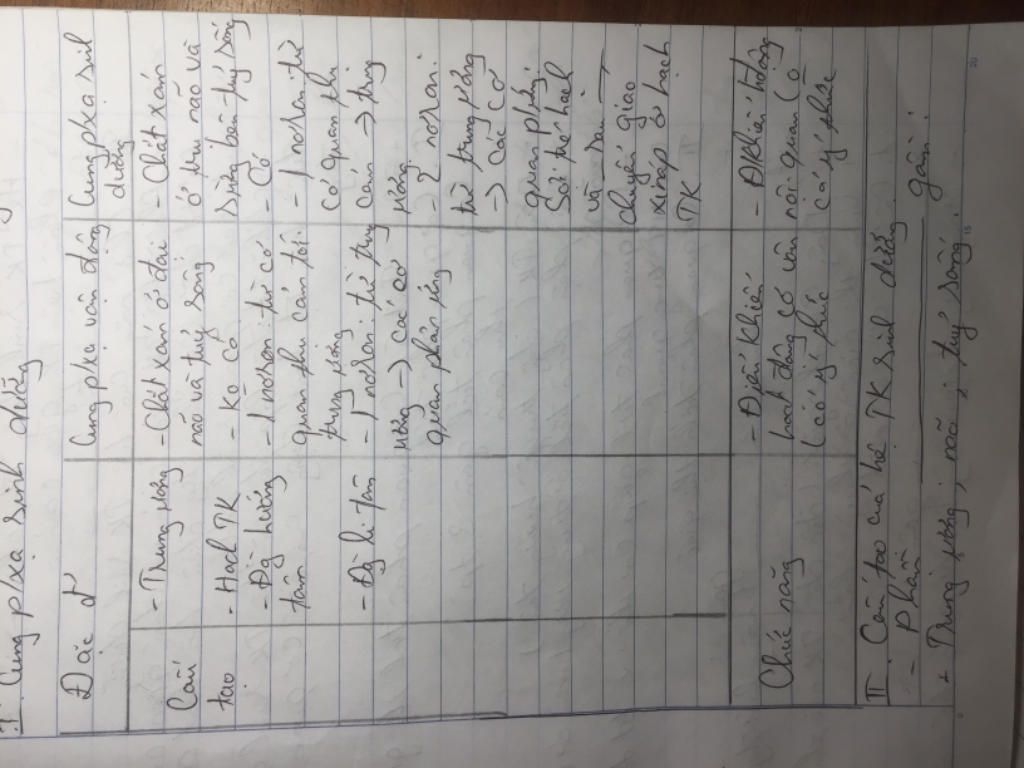 I. Cung p/xạ sinh dưỡng
Đặc đ²
Cung pxạ vận động
Cung pxạ sinh
dưỡng
Cấu
tạo
- Trung ương
- Hạch TK
- Đg hướng
tâm
- Đg li tâm
- Chất xám ở đại
não và tuỷ sống
- Ko có
- 1 nơron: từ cơ
quan thụ cảm tới
trung ương
- 1 nơron: từ trung
ương → các cơ
quan phản ứng
- Chất xám
ở trụ não và
sừng bên tuỷ sống
- Có
- 1 nơron: từ
cơ quan thụ
cảm → trung
ương
- 2 nơron:
từ trung ương
→ các cơ
quan p/ứng
Sợi trc hạch
và sau
chuyển giao
xináp ở hạch
TK
Chức năng
- Điều khiển
hoạt động cơ vân
(có ý thức
- Đ/khiển h/động
nội quan (o
có ý thức
II. Cấu tạo của hệ TK sinh dưỡng
- phần gồm:
+ Trung ương; não, tuỷ sống.